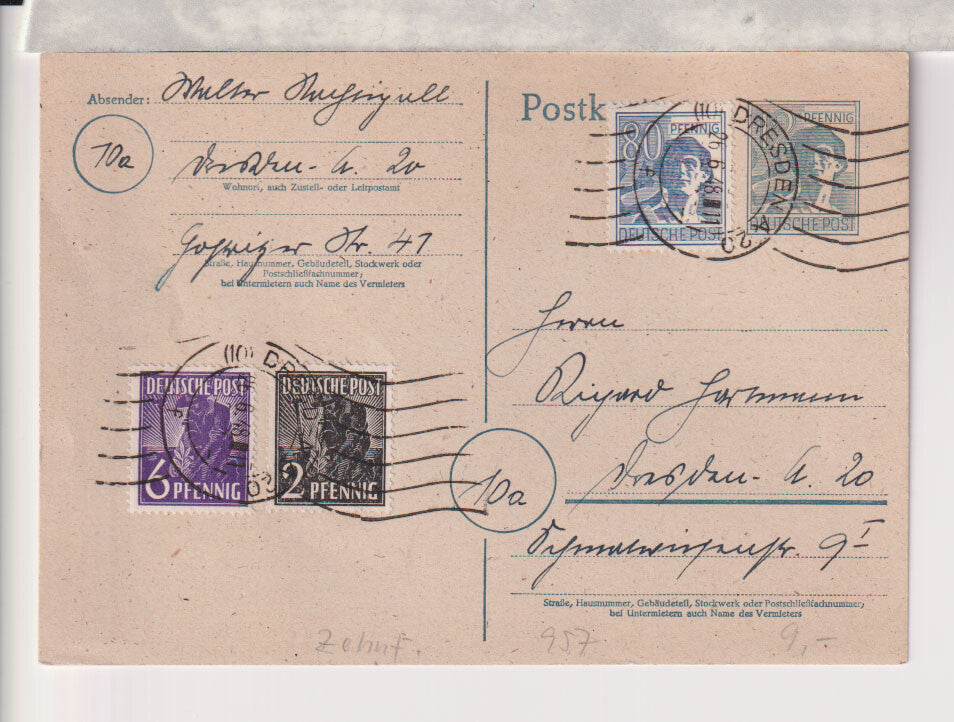 Absender: Walter Nachtigall
10a
Dresden - A. 20
Wohnort, auch Zustell- oder Leitpostamt
Gostritzer Str. 41
Straße, Hausnummer, Gebäudeteil, Stockwerk oder
Postschließfachnummer;
bei Untermietern auch Name des Vermieters
Postk
80 PFENNIG
DEUTSCHE POST
PFENNIG
DEUTSCHE POST
(10) DRESDEN A 20
26.6.48
Herrn
Richard Hartmann
10a
Dresden - A. 20
9 I
Straße, Hausnummer, Gebäudeteil, Stockwerk oder Postschließfachnummer;
bei Untermietern auch Name des Vermieters
DEUTSCHE POST
6 PFENNIG
DEUTSCHE POST
2 PFENNIG
Zehnf.
957
9,-